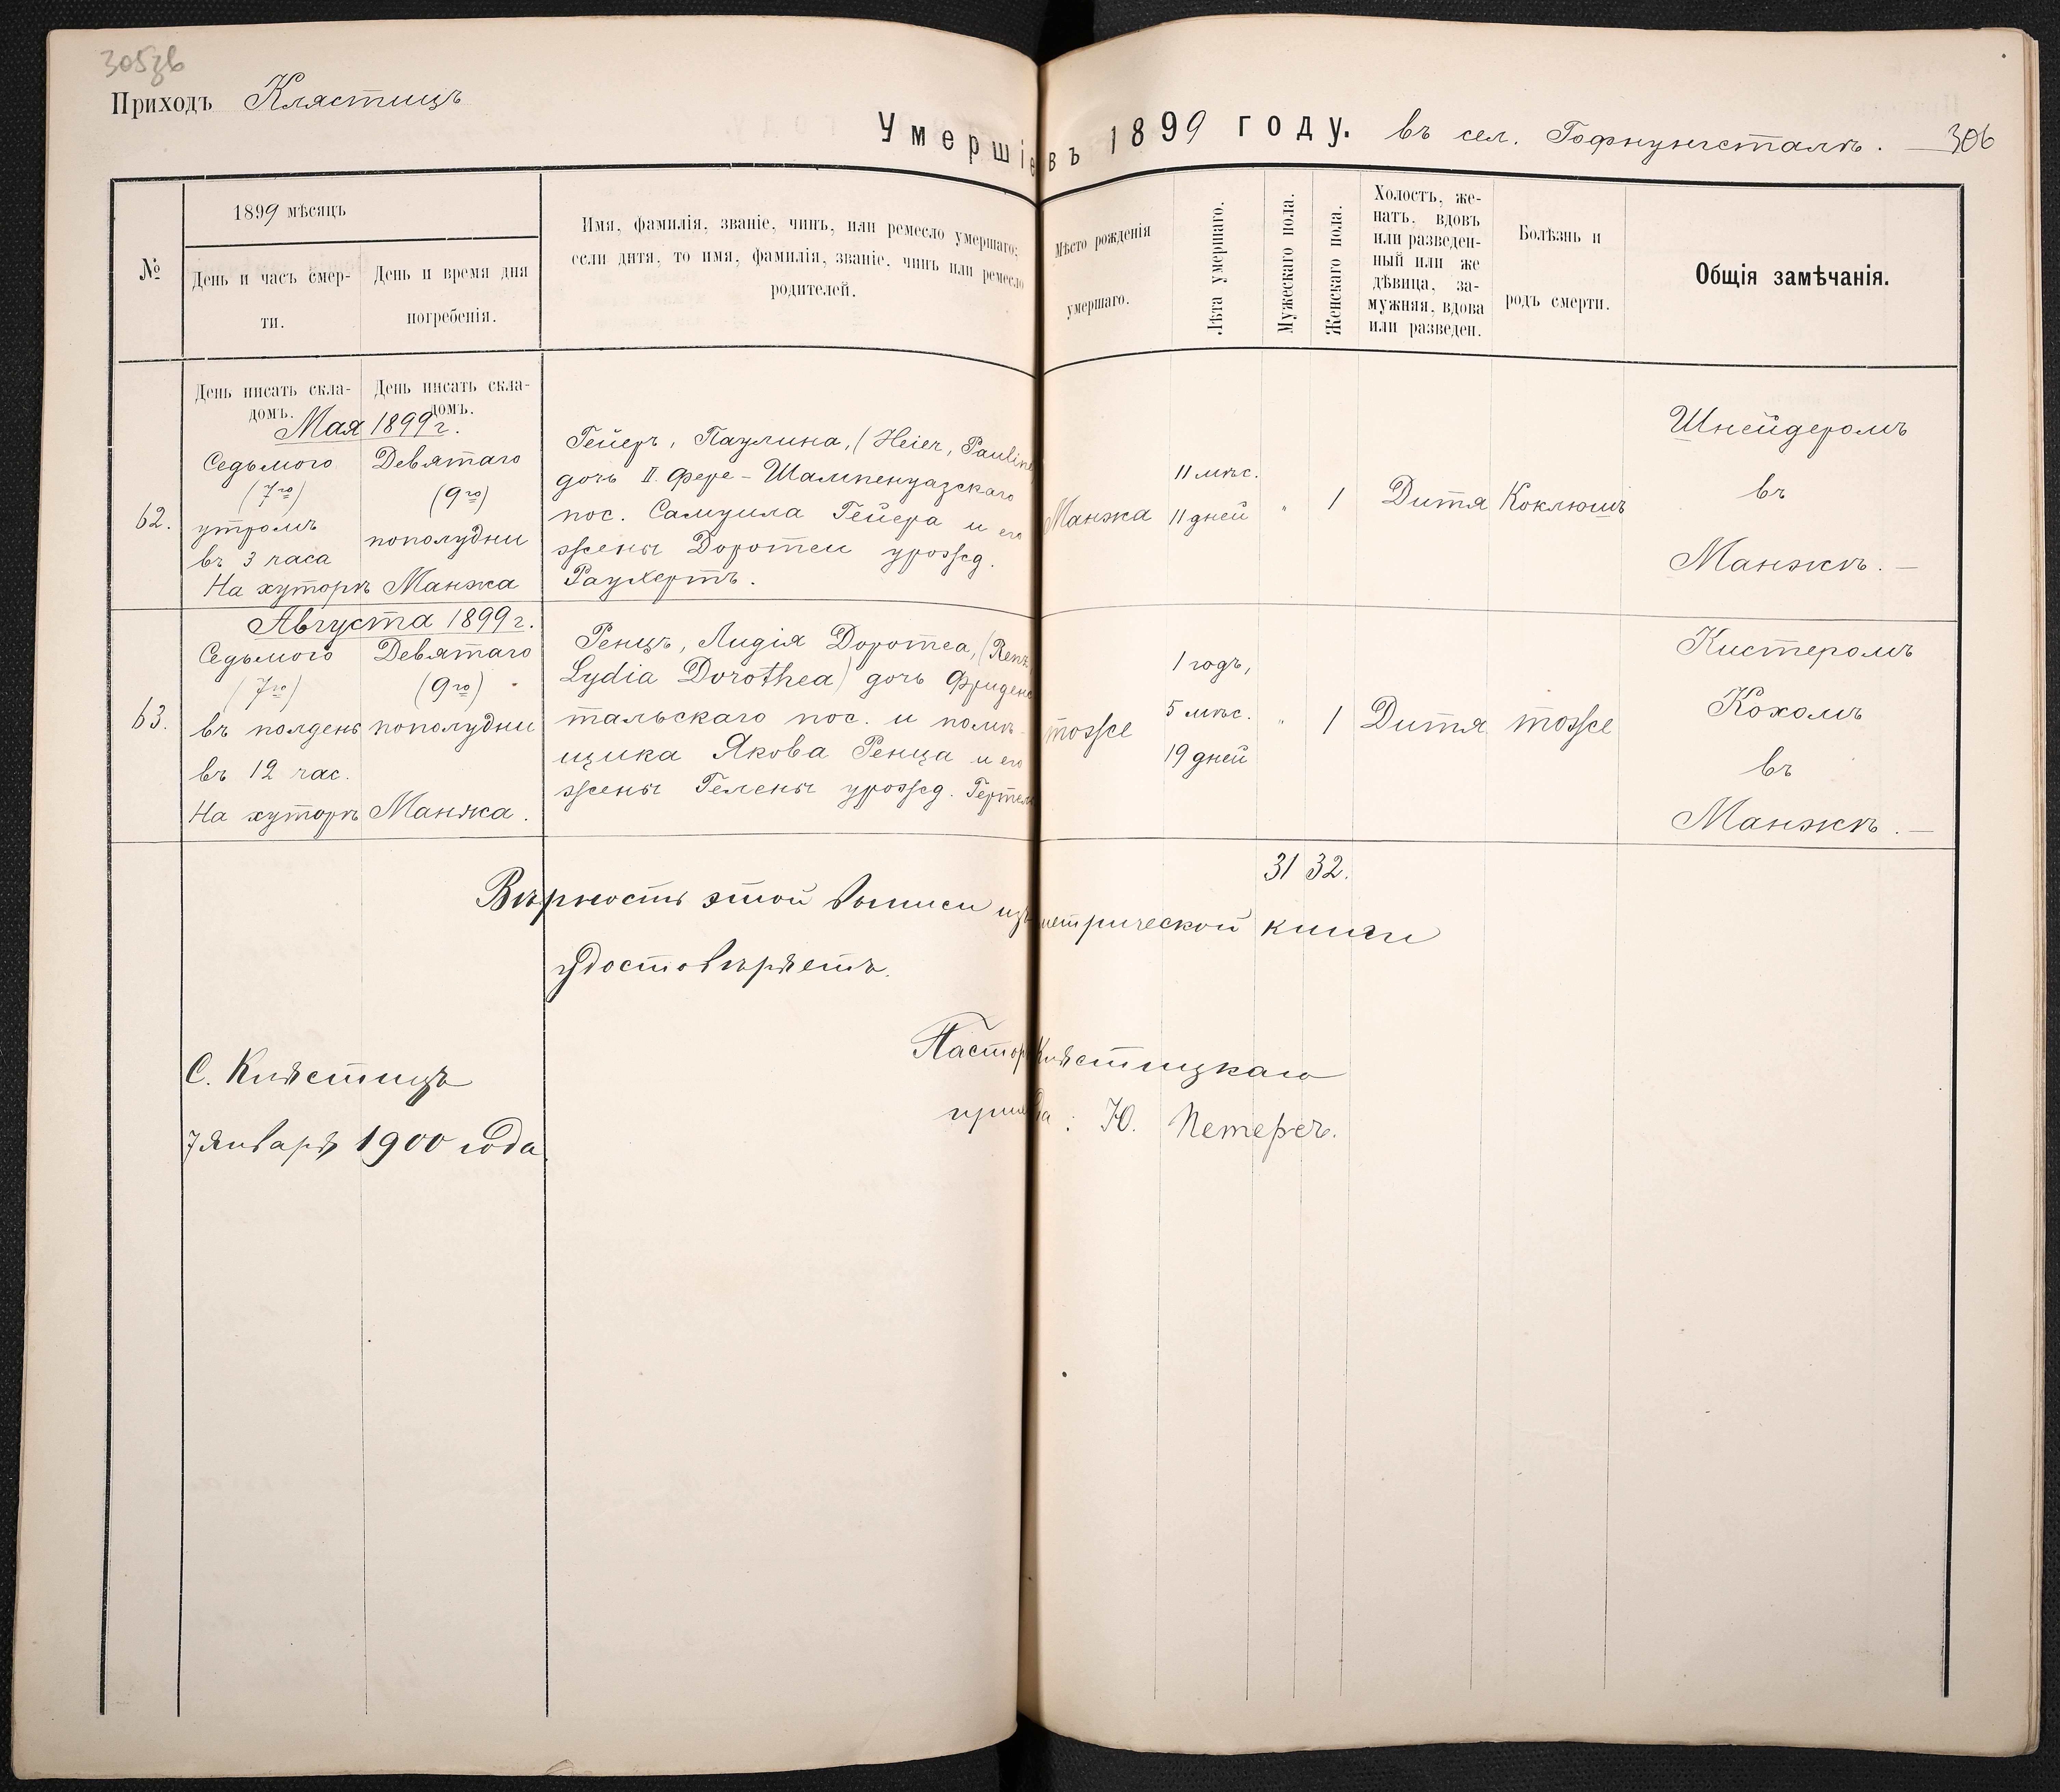 305зв
Приходъ Клястицъ
Умершіе въ 1899 году. въ сел. Гофнунгсталѣ. — 306
№
1899 мѣсяцъ
День и часъ смер-
ти.
День и время дня
погребенія.
Имя, фамилія, званіе, чинъ, или ремесло умершаго;
если дитя, то имя, фамилія, званіе, чинъ или ремесло
родителей.
Мѣсто рожденія
умершаго.
Лѣта умершаго.
Мужескаго пола.
Женскаго пола.
Холостъ, же-
натъ, вдовъ
или разведен-
ный или же
дѣвица, за-
мужняя, вдова
или разведен.
Болѣзнь и
родъ смерти.
Общія замѣчанія.
День писать скла-
домъ.
День писать скла-
домъ.
Мая 1899 г.
62.
Седьмого
(7го)
утромъ
въ 3 часа
Девятаго
(9го)
пополудни
На хуторѣ Манжа
Гейеръ, Паулина, (Heier, Pauline)
дочь II. Фере-Шампенуазскаго
пос. Самуила Гейера и его
жены Доротеи урожд.
Раухертъ.
Манжа
11 мѣс.
11 дней
"
1
Дитя
Коклюшъ
Шнейдеромъ
въ
Манжѣ. —
Августа 1899 г.
63.
Седьмого
(7го)
въ полдень
въ 12 час.
Девятаго
(9го)
пополудни
На хуторѣ Манжа.
Ренцъ, Лидія Доротеа, (Renz,
Lydia Dorothea) дочь Фриденс
тальскаго пос. и помѣ-
щика Якова Ренца и его
жены Гелены урожд. Гертель
тоже
1 годъ,
5 мѣс.
19 дней
"
1
Дитя
тоже
Кистеромъ
Кохомъ
въ
Манжѣ. —
31 32.
Вѣрность этой выписи изъ метрической книги
удостовѣряетъ.
Пасторъ Клястицкаго
прихода: Ю. Петерсъ.
С. Клястицъ
7 Января 1900 года.